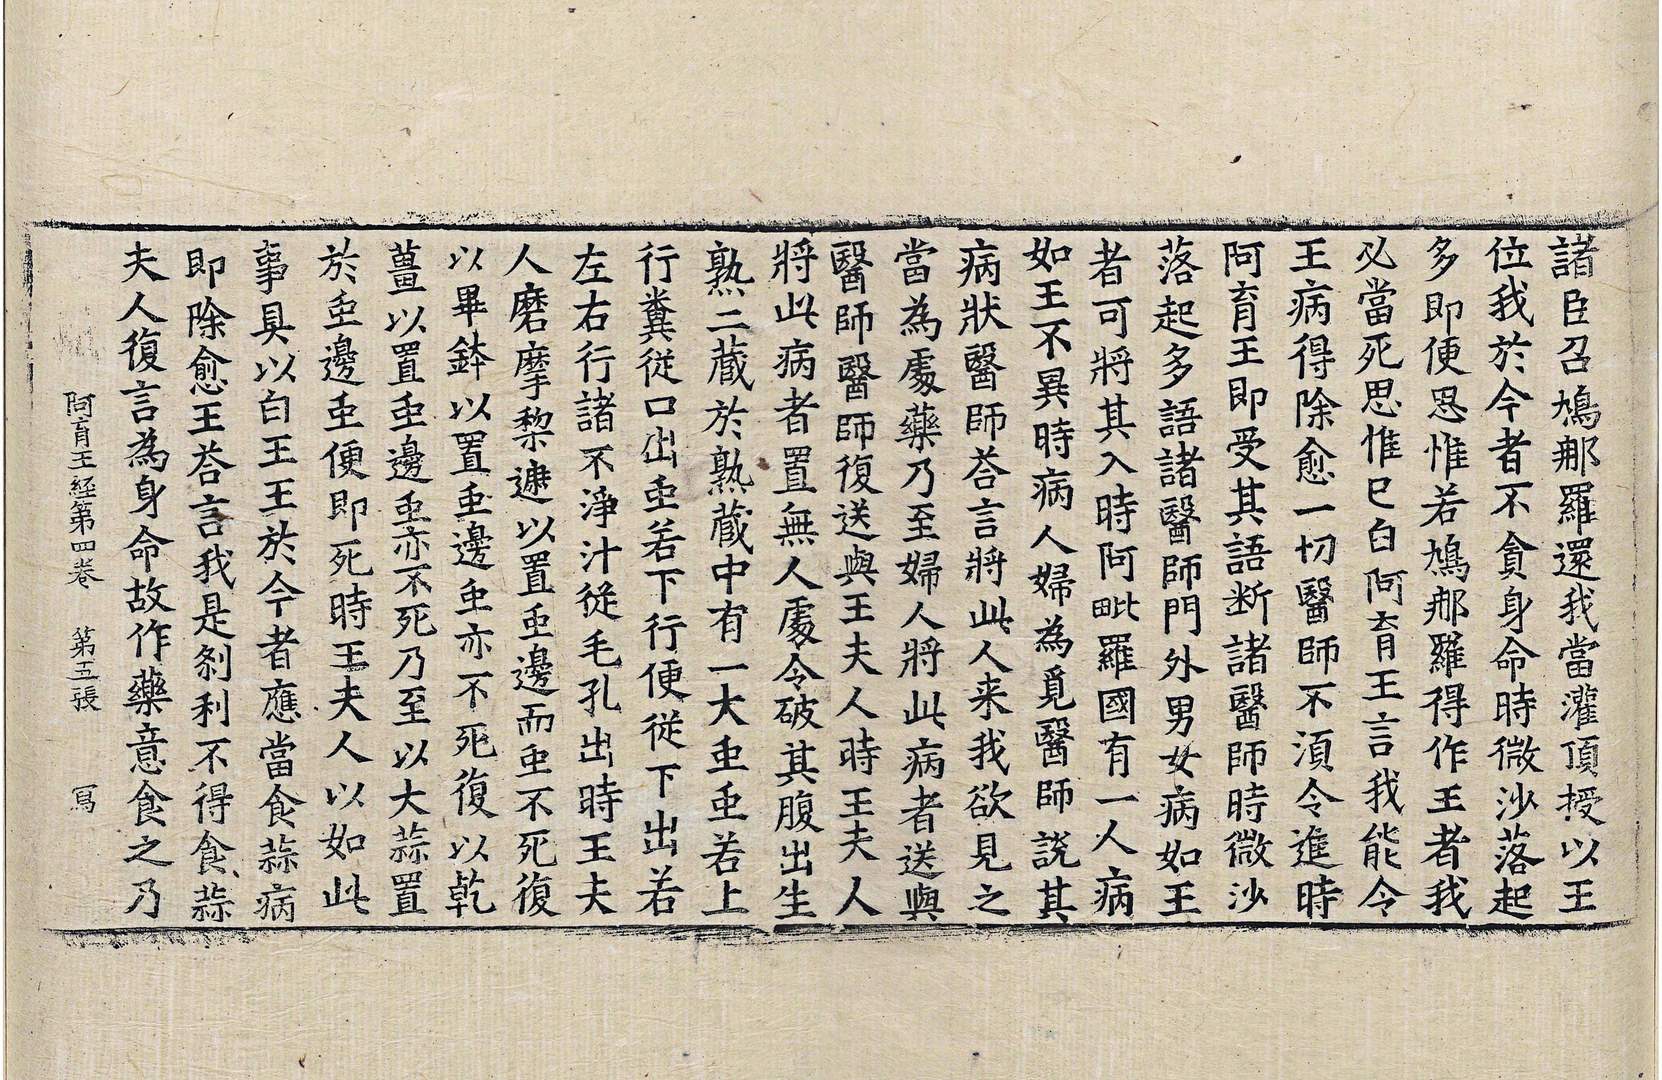 諸臣召鳩那羅還我當灌頂授以王
位我於今者不貪身命時微沙落起
多即便思惟若鳩那羅得作王者我
必當死思惟已白阿育王言我能令
王病得除愈一切醫師不湏令進時
阿育王即受其語断諸醫師時微沙
落起多語諸醫師門外男女病如王
者可將其入時阿毗羅國有一人病
如王不異時病人婦為覓醫師說其
病狀醫師荅言將此人来我欲見之
當為處藥乃至婦人將此病者送與
醫師醫師復送與王夫人時王夫人
將此病者置無人處令破其腹出生
熟二藏於熟藏中有一大䖝䖝若上
行糞從口出䖝若下行便從下出若
左右行諸不淨汁從毛孔出時王夫
人磨摩梨遮以置䖝邊而䖝不死復
以畢鉢以置䖝邊䖝亦不死復以乾
薑以置䖝邊䖝亦不死乃至以大蒜置
於䖝邊䖝便即死時王夫人以如此
事具以白王王於今者應當食蒜病
即除愈王荅言我是刹利不得食蒜
夫人復言為身命故作藥意食之乃
阿育王經第四卷　第五張　寫